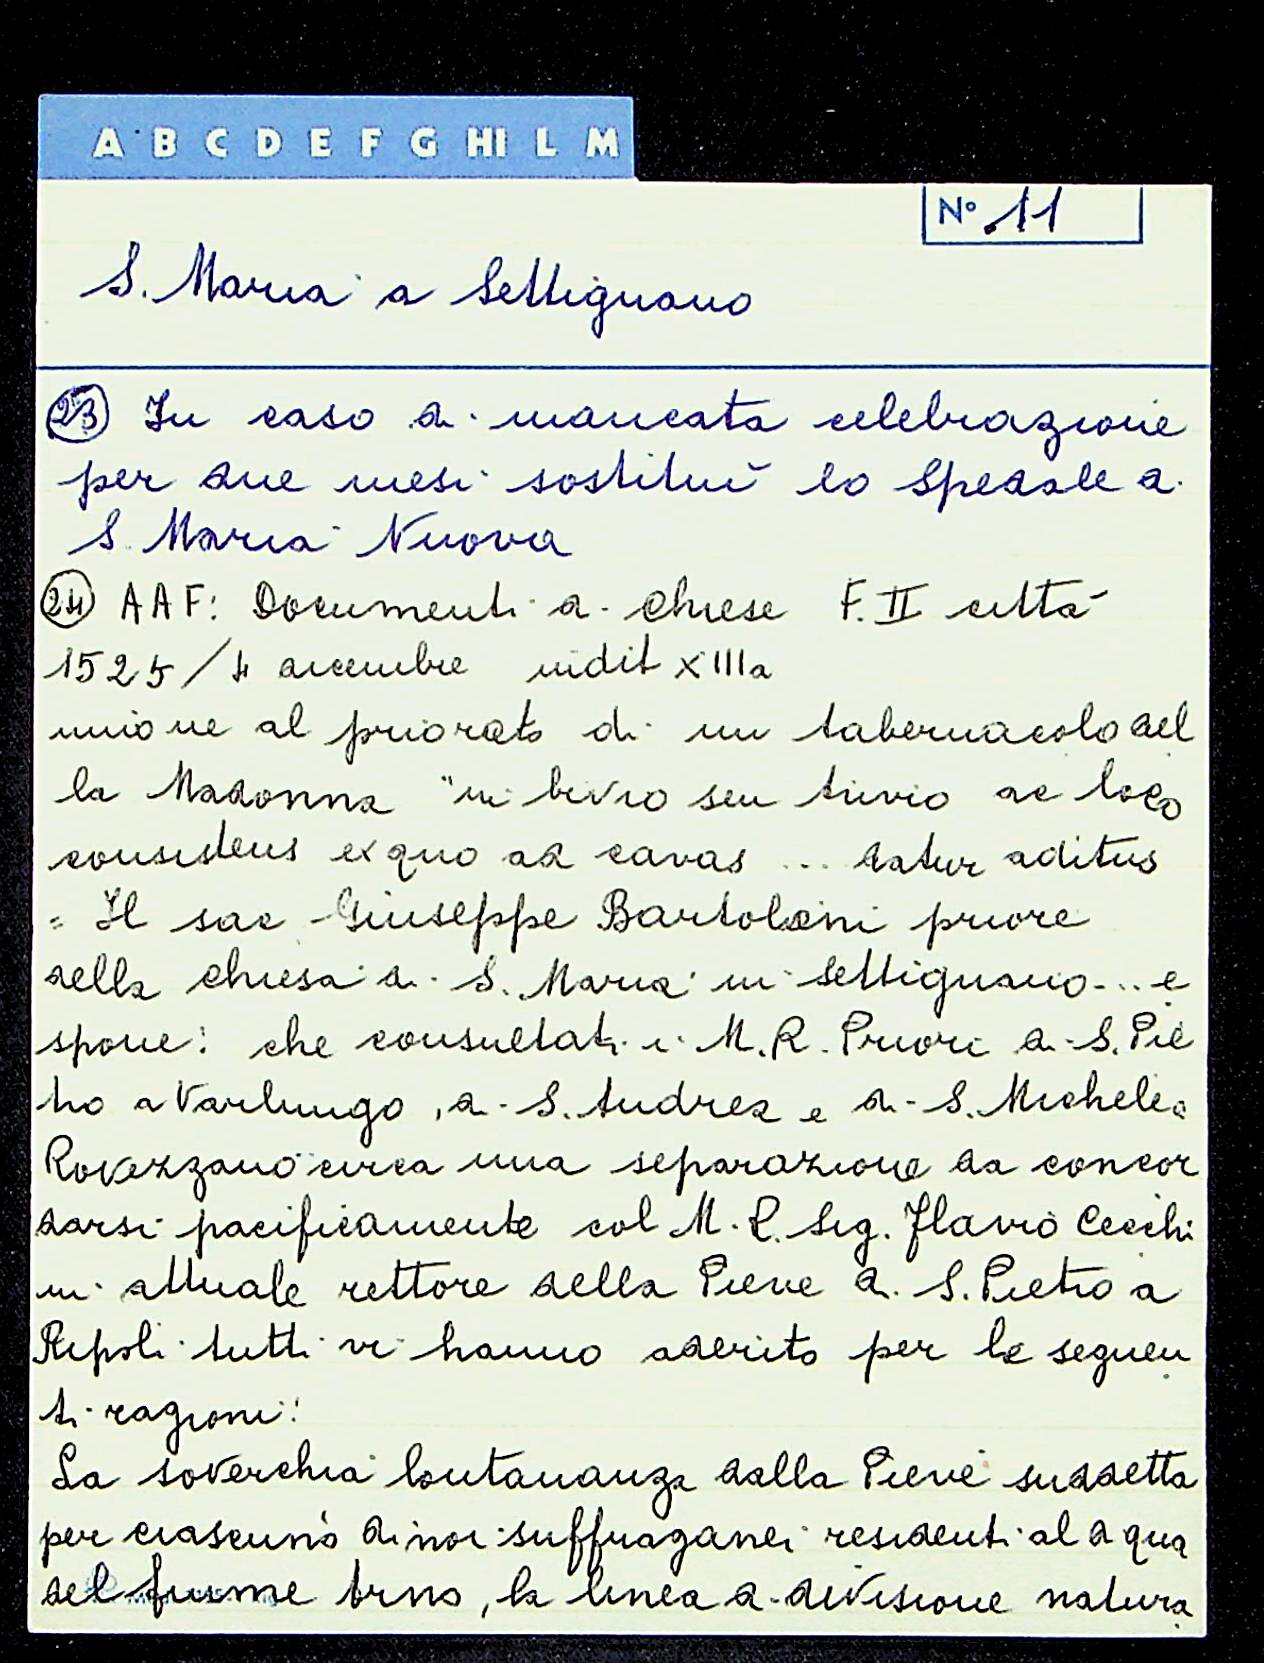 A B C D E F G HI L M
No. 11
S. Maria a Settignano
(23) In caso di mancata celebrazione
per due mesi sostituì lo Spedale di
S. Maria Nuova
(24) AAF: Documenti di chiese F. II città
1525/4 dicembre indit XIIIa
unione al priorato di un tabernacolo del
la Madonna "in bivio seu trivio ac loco
consistens ex quo ad cavas ... datur aditus
= Il sac Giuseppe Bartoloni priore
della chiesa di S. Maria in Settignano... e
spone: che consultati i M.R. Priori di S. Pie
tro a Varlungo, di S. Andrea e di S. Michele a
Rovezzano circa una separazione da concor
darsi pacificamente col M.R. Sig. Flavio Cecchi
ni attuale rettore della Pieve di S. Pietro a
Ripoli tutti vi hanno aderito per le seguen
ti ragioni:
La soverchia lontananza dalla Pieve suddetta
per ciascuno di noi suffraganei residenti al di qua
del fiume Arno, la linea di divisione natura